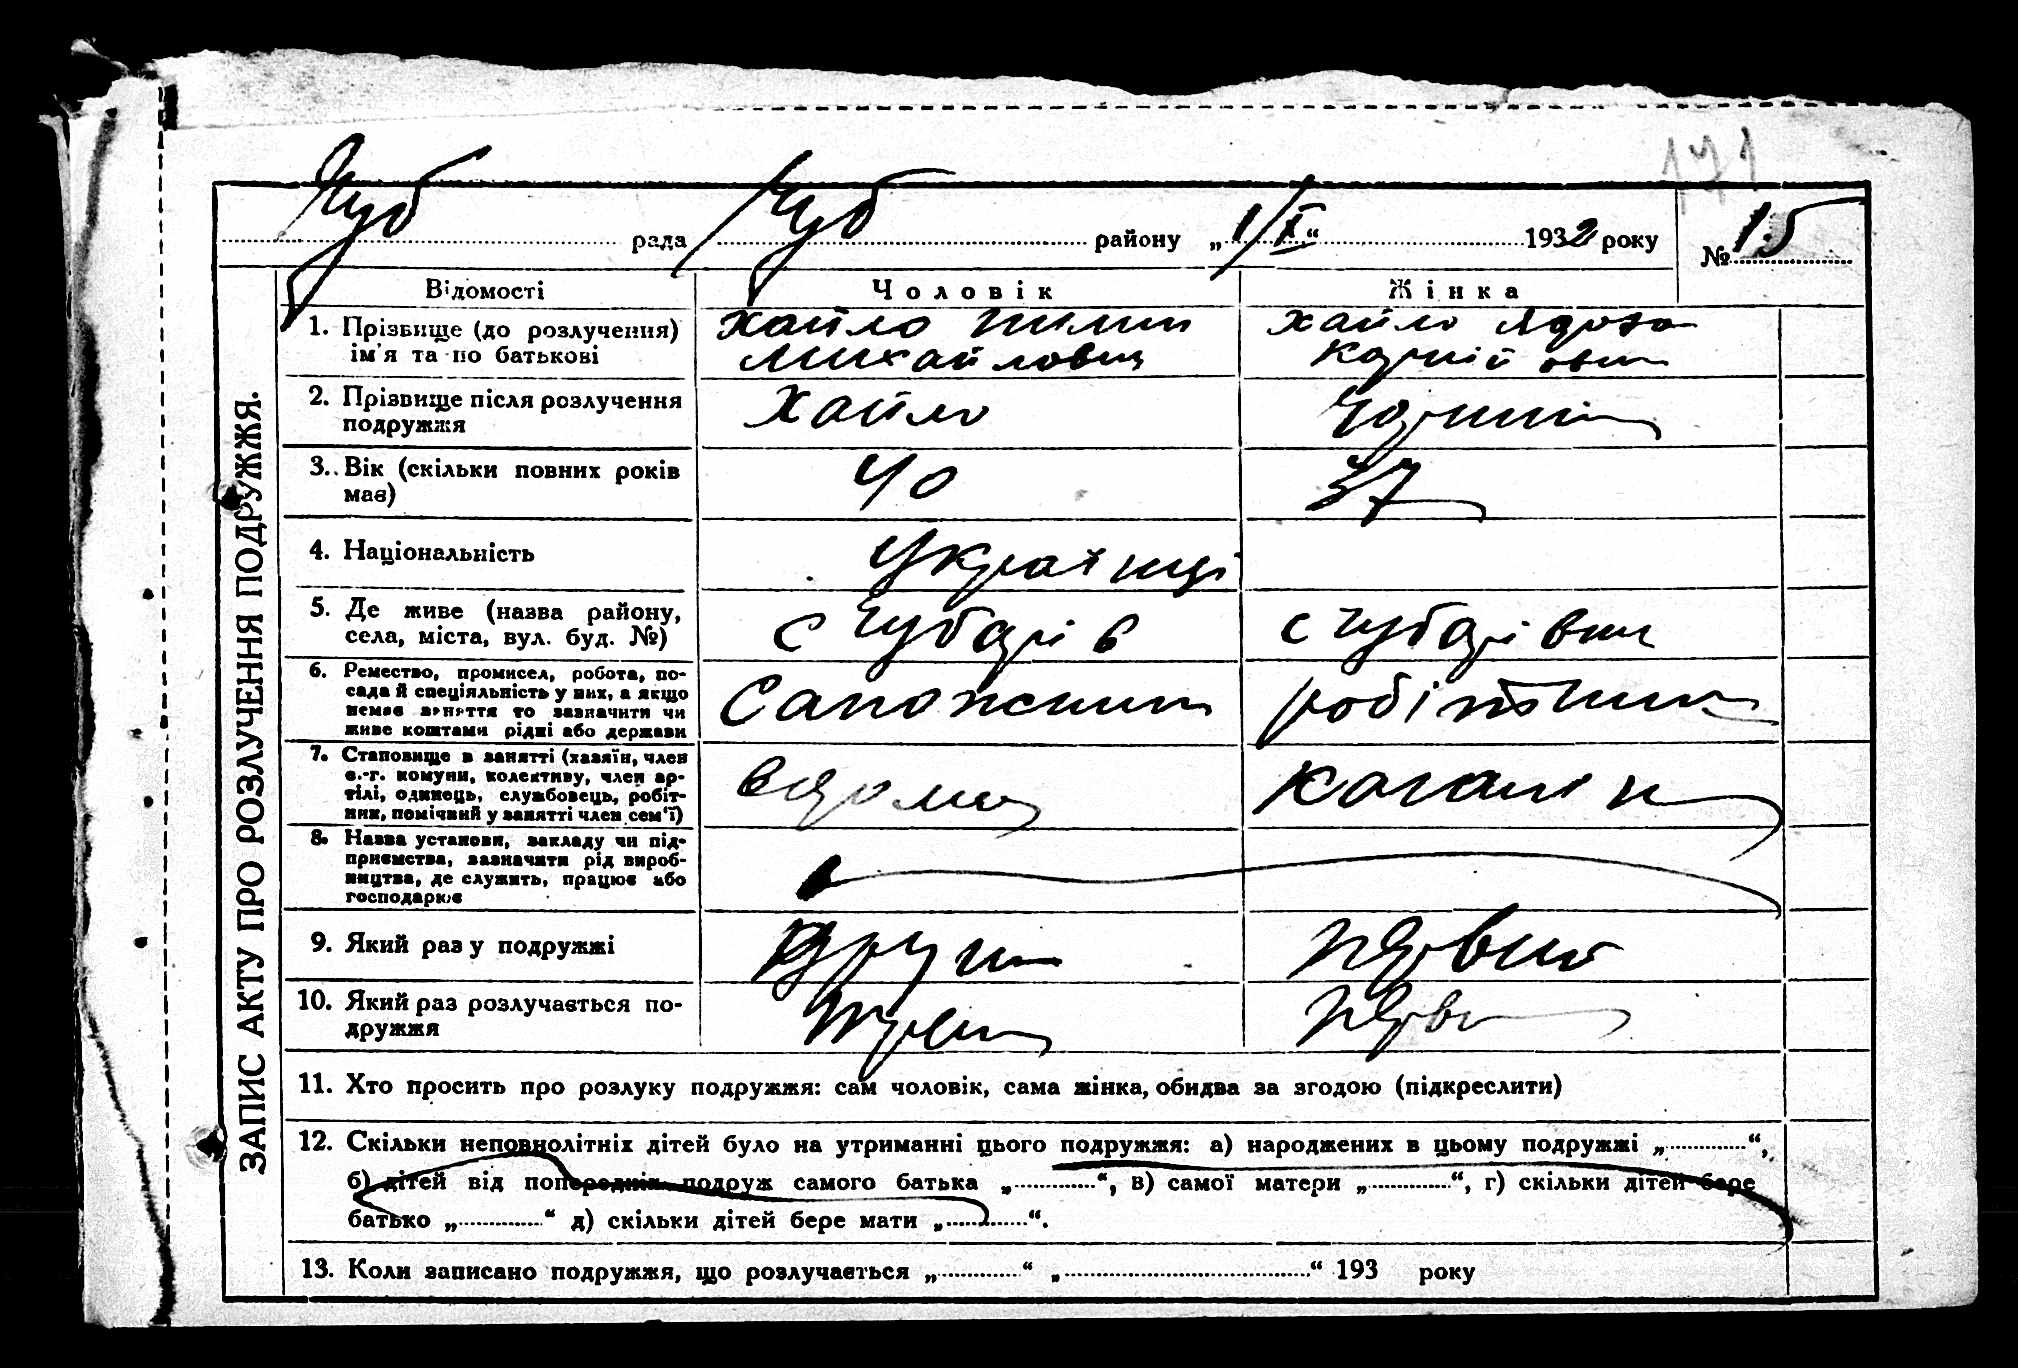 171
Чуб рада Чуб району „1/X“ 1932 року № 15
ЗАПИС АКТУ ПРО РОЗЛУЧЕННЯ ПОДРУЖЖЯ.
Відомості Чоловік Жінка
1. Прізвище (до розлучення) Хайло Хайло
ім'я та по батькові Михайлович
2. Прізвище після розлучення Хайло
подружжя
3. Вік (скільки повних років 40 37
має)
4. Національність Українці
5. Де живе (назва району, с Чубарів с Чубарівки
села, міста, вул. буд. №)
6. Ремество, промисел, робота, по-
сада й спеціяльність у них, а якщо Сапожник робітник
немає заняття то зазначити чи
живе коштами рідні або держави
7. Становище в занятті (хазяїн, член
с.-г. комуни, колективу, член ар-
тілі, одинець, службовець, робіт-
ник, помічний у занятті член сем'ї)
8. Назва установи, закладу чи під-
приємства, зазначити рід вироб-
ництва, де служить, працює або
господарює
9. Який раз у подружжі
10. Який раз розлучається по-
дружжя
11. Хто просить про розлуку подружжя: сам чоловік, сама жінка, обидва за згодою (підкреслити)
12. Скільки неповнолітніх дітей було на утриманні цього подружжя: а) народжених в цьому подружжі „............“,
б) дітей від попередніх подруж самого батька „............“, в) самої матери „............“, г) скільки дітей бере
батько „............“ д) скільки дітей бере мати „............“.
13. Коли записано подружжя, що розлучається „............“ „..............................“ 193 року